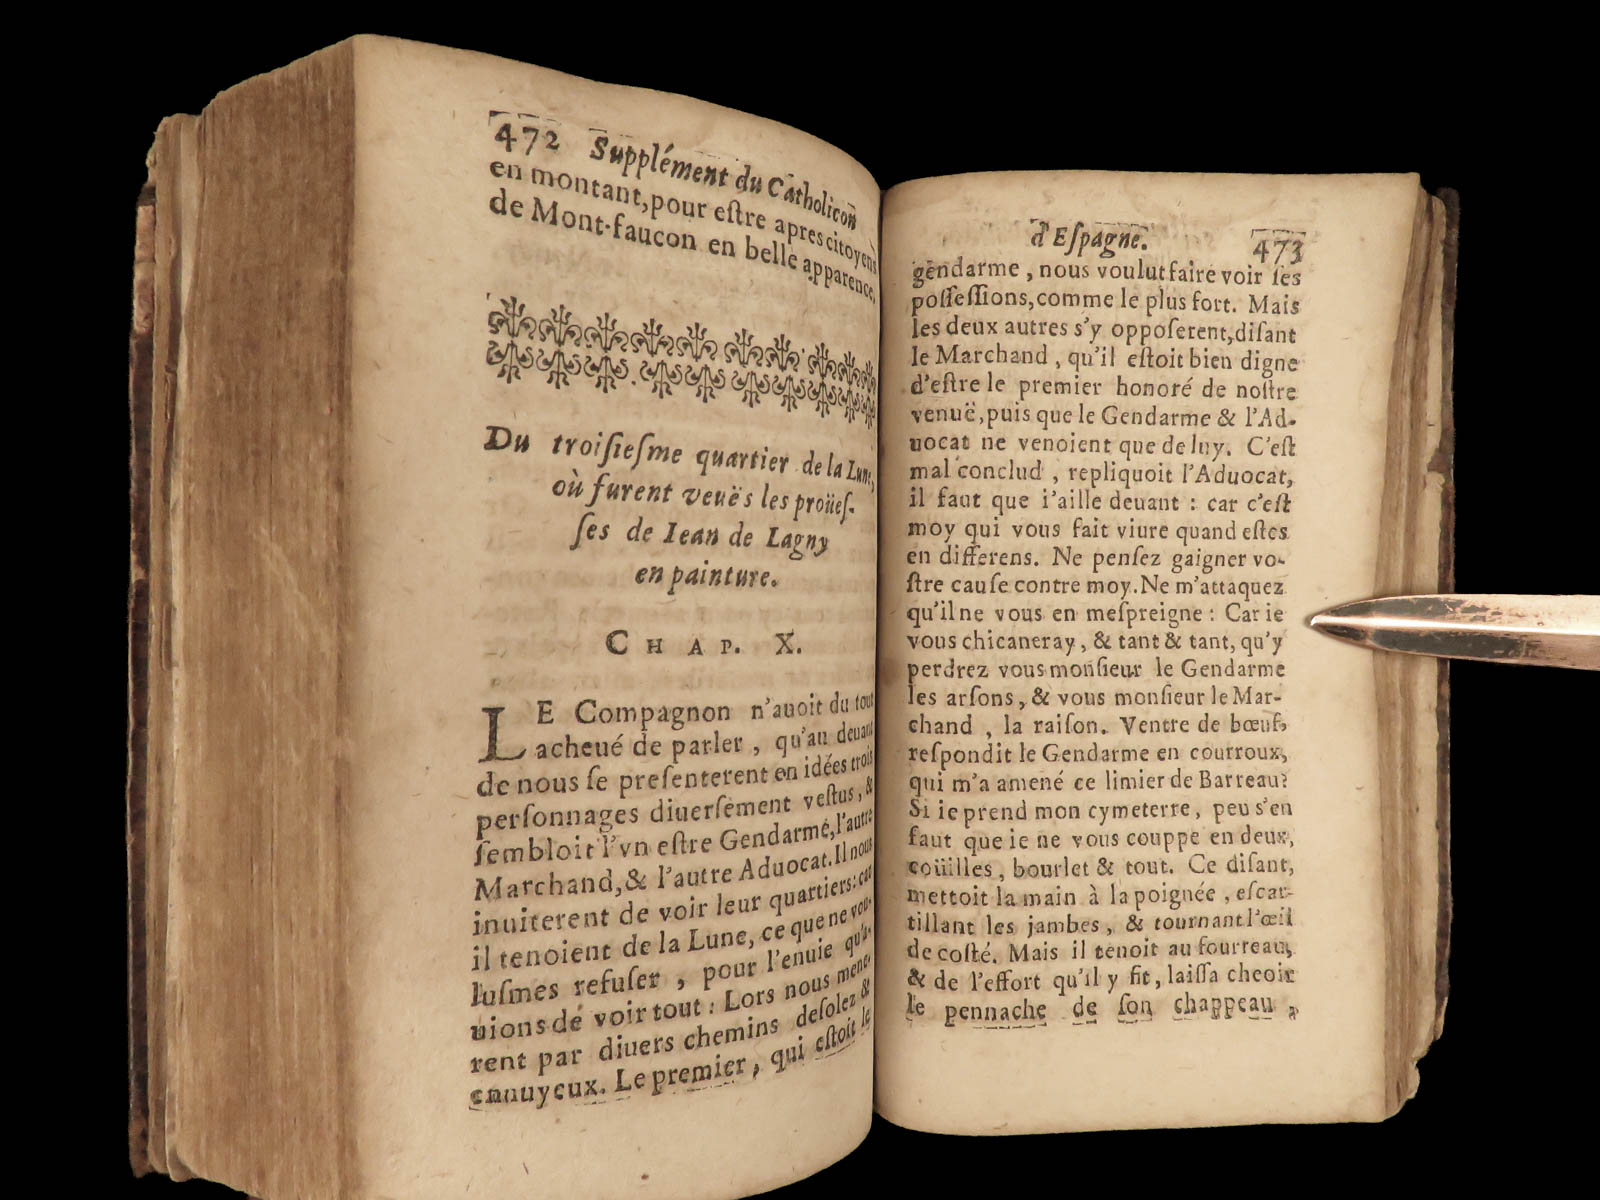 472 Supplément du Catholicon
en montant, pour eſtre apres citoyens
de Mont-faucon en belle apparence.
Du troiſieſme quartier de la Lune,
où furent veuës les proüeſ-
ſes de Iean de Lagny
en painture.
CHAP. X.
LE Compagnon n'auoit du tout
acheué de parler, qu'au deuant
de nous ſe preſenterent en idées trois
perſonnages diuerſement veſtus, &
ſembloit l'vn eſtre Gendarme, l'autre
Marchand, & l'autre Aduocat. Il nous
inuiterent de voir leur quartiers: car
il tenoient de la Lune, ce que ne vou-
luſmes refuſer, pour l'enuie qu'a-
uions de voir tout: Lors nous mene-
rent par diuers chemins deſolez &
ennuyeux. Le premier, qui eſtoit le
d'Eſpagne. 473
gendarme, nous voulut faire voir ſes
poſſeſſions, comme le plus fort. Mais
les deux autres s'y oppoſerent, diſant
le Marchand, qu'il eſtoit bien digne
d'eſtre le premier honoré de noſtre
venuë, puis que le Gendarme & l'Ad-
uocat ne venoient que de luy. C'eſt
mal conclud, repliquoit l'Aduocat,
il faut que i'aille deuant: car c'eſt
moy qui vous fait viure quand eſtes
en differens. Ne penſez gaigner vo-
ſtre cauſe contre moy. Ne m'attaquez
qu'il ne vous en meſpreigne: Car ie
vous chicaneray, & tant & tant, qu'y
perdrez vous monſieur le Gendarme
les arſons, & vous monſieur le Mar-
chand, la raiſon. Ventre de bœuf,
reſpondit le Gendarme en courroux,
qui m'a amené ce limier de Barreau?
Si ie prend mon cymeterre, peu s'en
faut que ie ne vous couppe en deux,
coüilles, bourlet & tout. Ce diſant,
mettoit la main à la poignée, eſcar-
tillant les jambes, & tournant l'œil
de coſté. Mais il tenoit au fourreau,
& de l'effort qu'il y fit, laiſſa cheoir
le pennache de ſon chappeau,